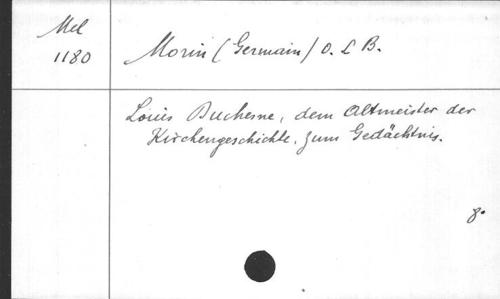 Mel
1180
Morin (Germain) O. S. B.
Louis Duchesne, dem Altmeister der
Kirchengeschichte, zum Gedächtnis.
8°